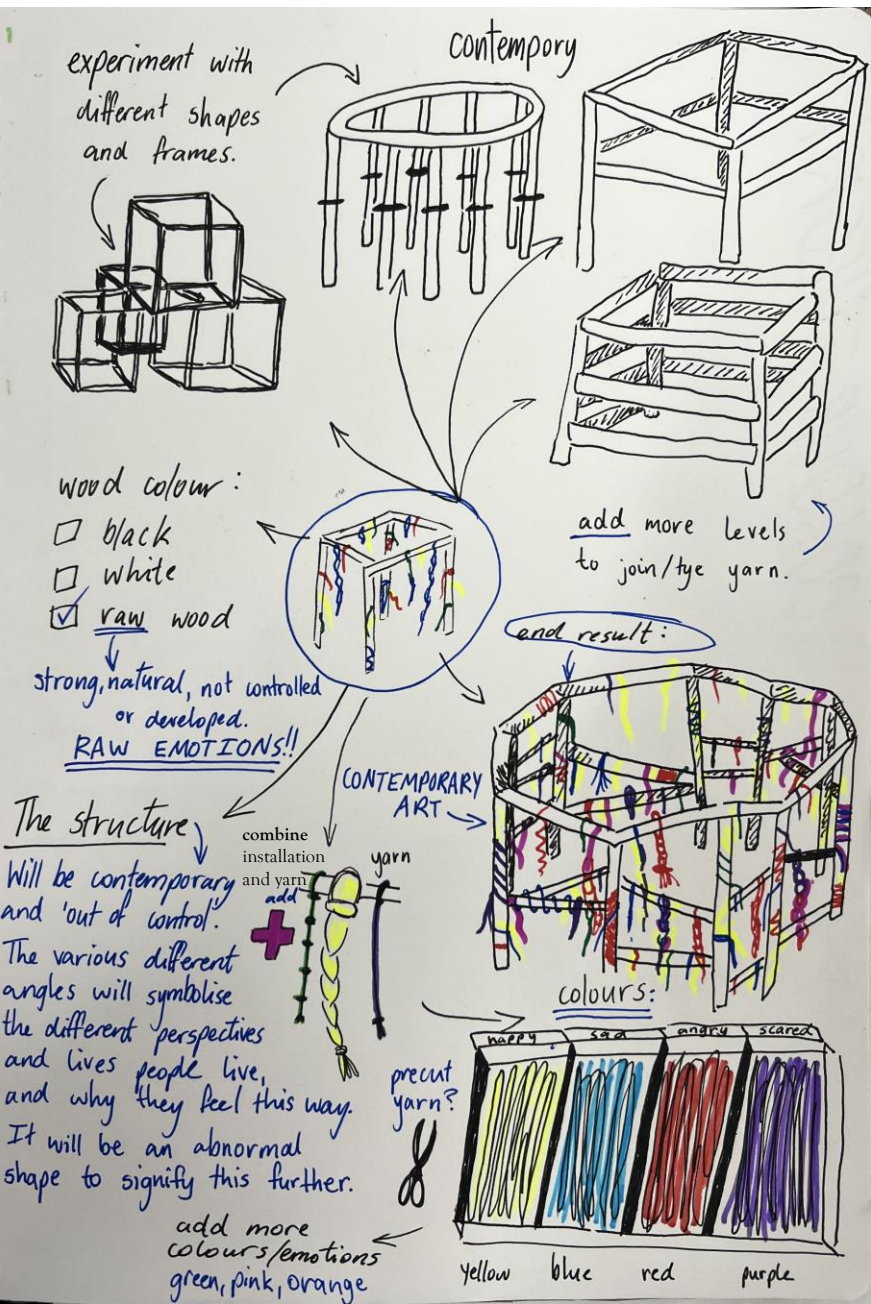 experiment with
different shapes
and frames.
contempory
wood colour:
black
white
raw wood
strong, natural, not controlled
or developed.
RAW EMOTIONS!!
add more levels
to join/tye yarn.
end result:
CONTEMPORARY
ART
The structure
Will be contemporary
and 'out of control'.
The various different
angles will symbolise
the different perspectives
and lives people live,
and why they feel this way.
It will be an abnormal
shape to signify this further.
combine
installation
and yarn
add
yarn
colours:
happy sad angry scared
precut
yarn?
yellow blue red purple
add more
colours/emotions
green, pink, orange